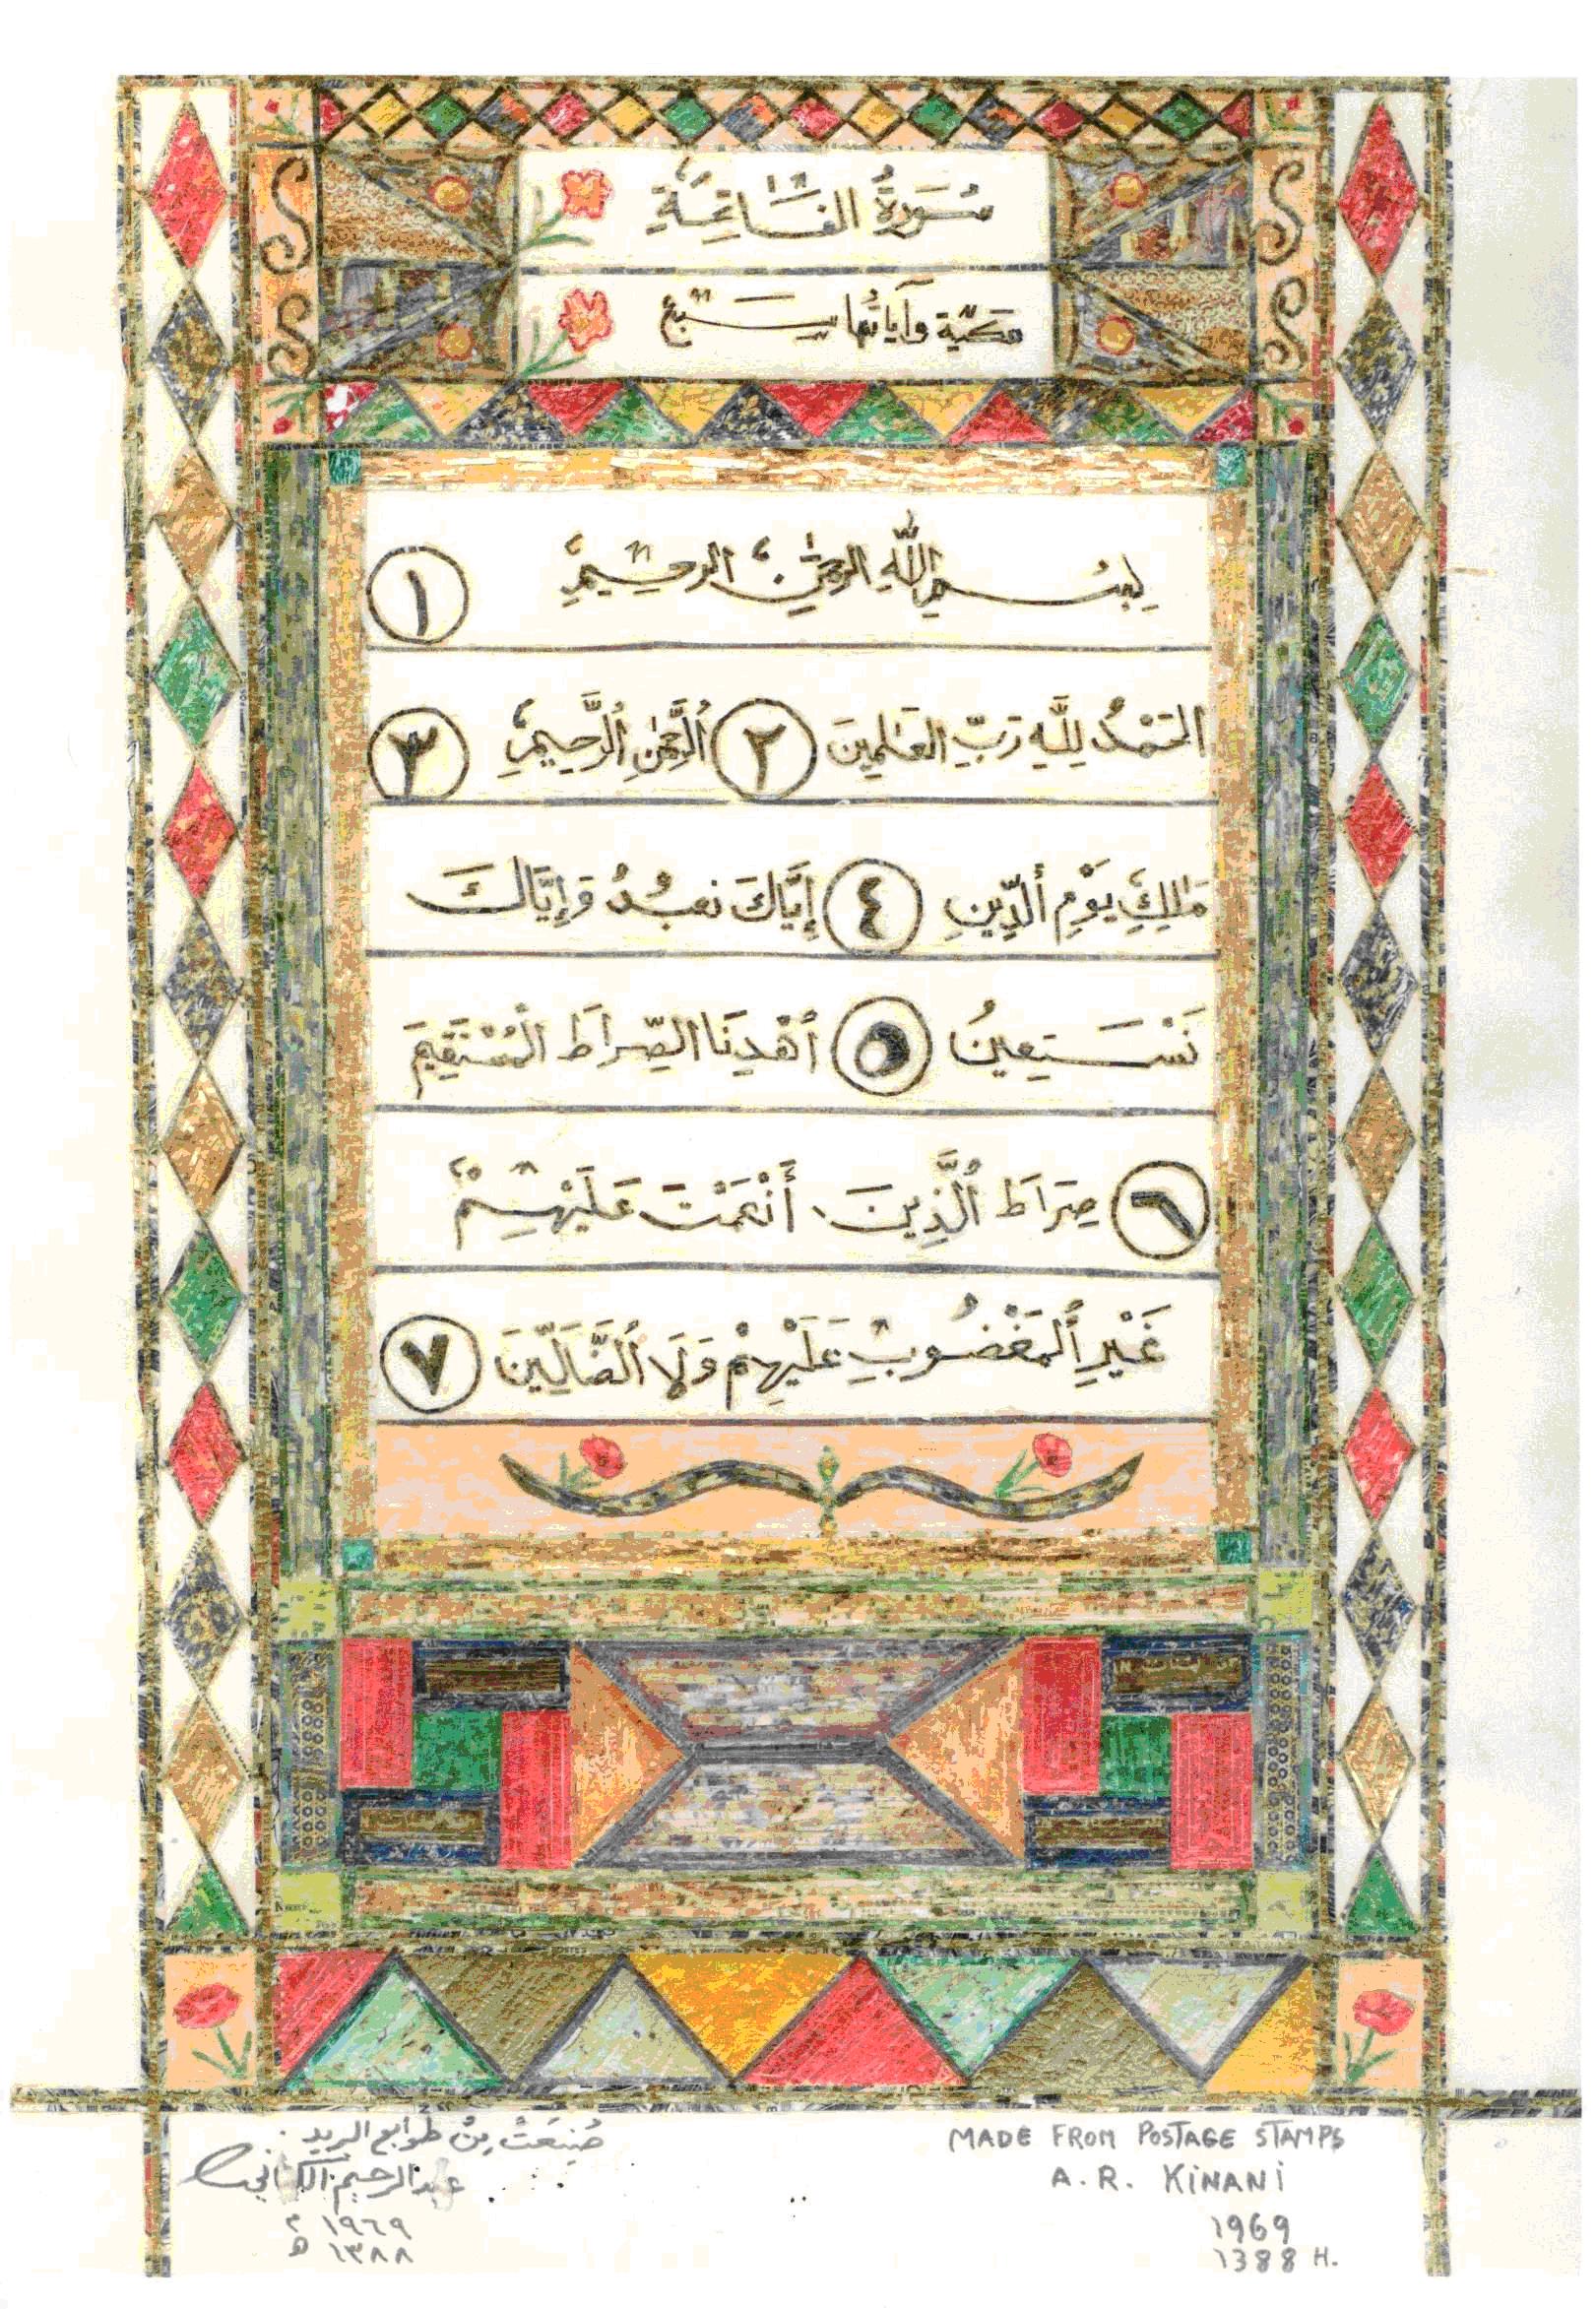 سُورَةُ الفَاتِحَةِ
مكيّة وآياتُها سبع
بِسْمِ اللَّهِ الرَّحْمٰنِ الرَّحِيمِ ١
الحَمْدُ لِلَّهِ رَبِّ العَالَمِينَ ٢ ٱلرَّحْمٰنِ ٱلرَّحِيمِ ٣
مَالِكِ يَوْمِ ٱلدِّينِ ٤ إِيَّاكَ نعبُدُ وَإِيَّاكَ
نَسْتَعِينُ ٥ ٱهْدِنَا الصِّرَاطَ الْمُسْتَقِيمَ
٦ صِرَاطَ ٱلَّذِينَ أَنْعَمْتَ عَلَيْهِمْ
غَيْرِ ٱلمَغْضُوبِ عَلَيْهِمْ وَلَا ٱلضَّالِّينَ ٧
صُنِعَتْ مِنْ طوابع البريد
عبدالرحيم الكناني
١٩٦٩ م
١٣٨٨ ه
MADE FROM POSTAGE STAMPS
A. R. KINANI
1969
1388 H.